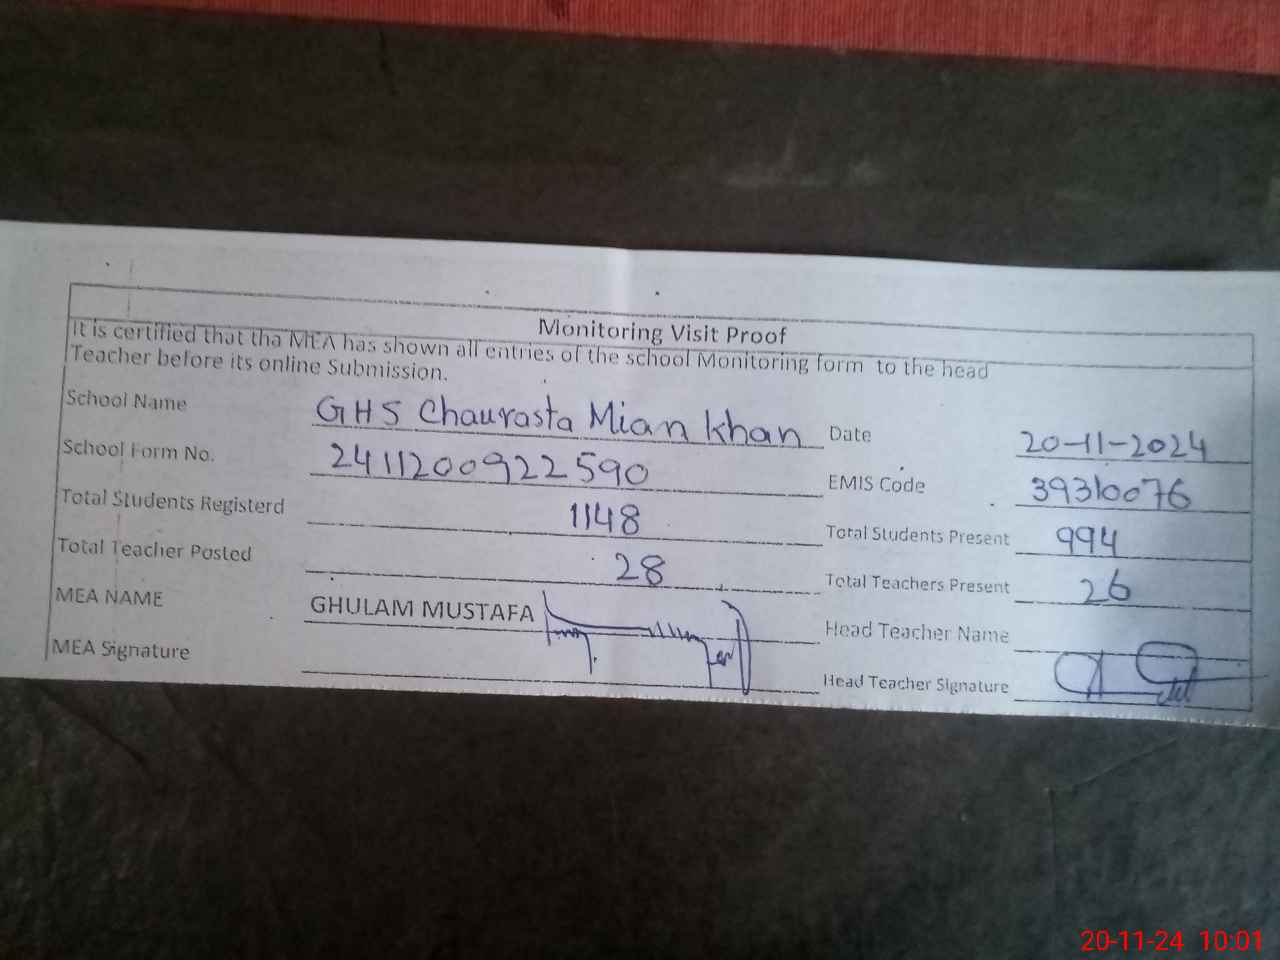 Monitoring Visit Proof
It is certified that tha MEA has shown all entries of the school Monitoring form to the head
Teacher before its online Submission.
School Name GHS Chaurasta Mian Khan Date 20-11-2024
School Form No. 2411200922590 EMIS Code 39310076
Total Students Registerd 1148 Total Students Present 994
Total Teacher Posted 28 Total Teachers Present 26
MEA NAME GHULAM MUSTAFA Head Teacher Name
MEA Signature Head Teacher Signature
20-11-24 10:01